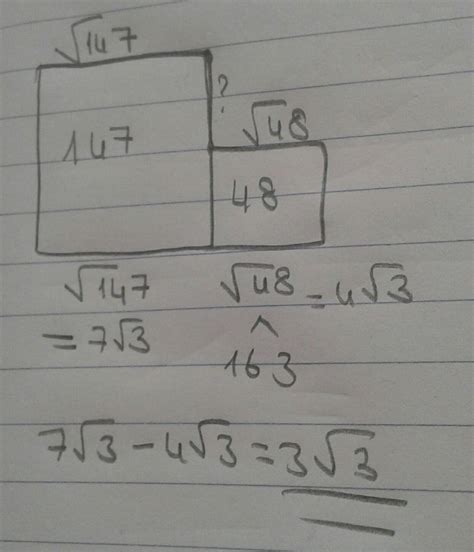 √147
?
√48
147
48
√147 √48 = 4√3
= 7√3
^
16 3
7√3 - 4√3 = 3√3